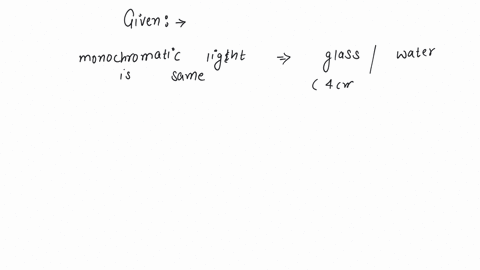 Given: →
monochromatic light ⇒ glass / water
is same (4cm